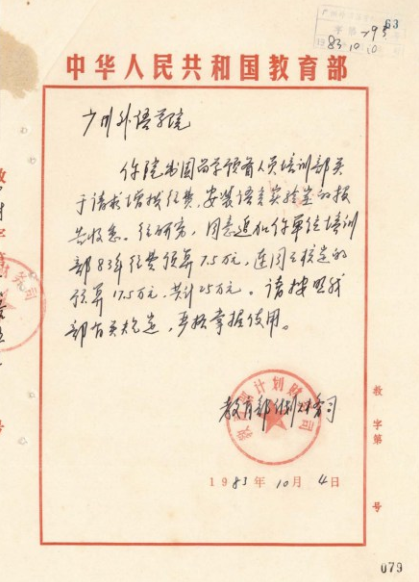 63
1983.10.10
中华人民共和国教育部
广州外语学院
你院出国留学预备人员培训部关
于请求增拨经费，安装语言实验室的报
告收悉。经研究，同意追加你单位培训
部83年经费预算7.5万元，连同已核定的
预算17.5万元，共计25万元。请按照我
部有关规定，严格掌握使用。
教育部计划财务司
计划财
司
1983年10月4日
教字第 号
079